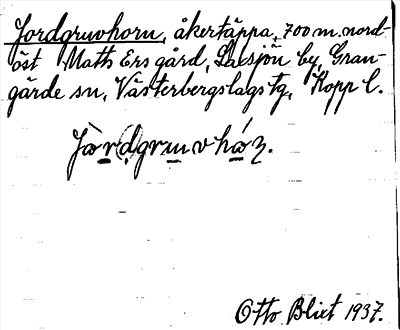 Jordgruvhorn, åkertäppa, 700 m. nord-
öst Matts Ers gård, Laxsjön by, Gran-
gärde sn, Västerbergslags tg, Kopp l.
Jòr(d)gruvhán.
Otto Blixt 1937.